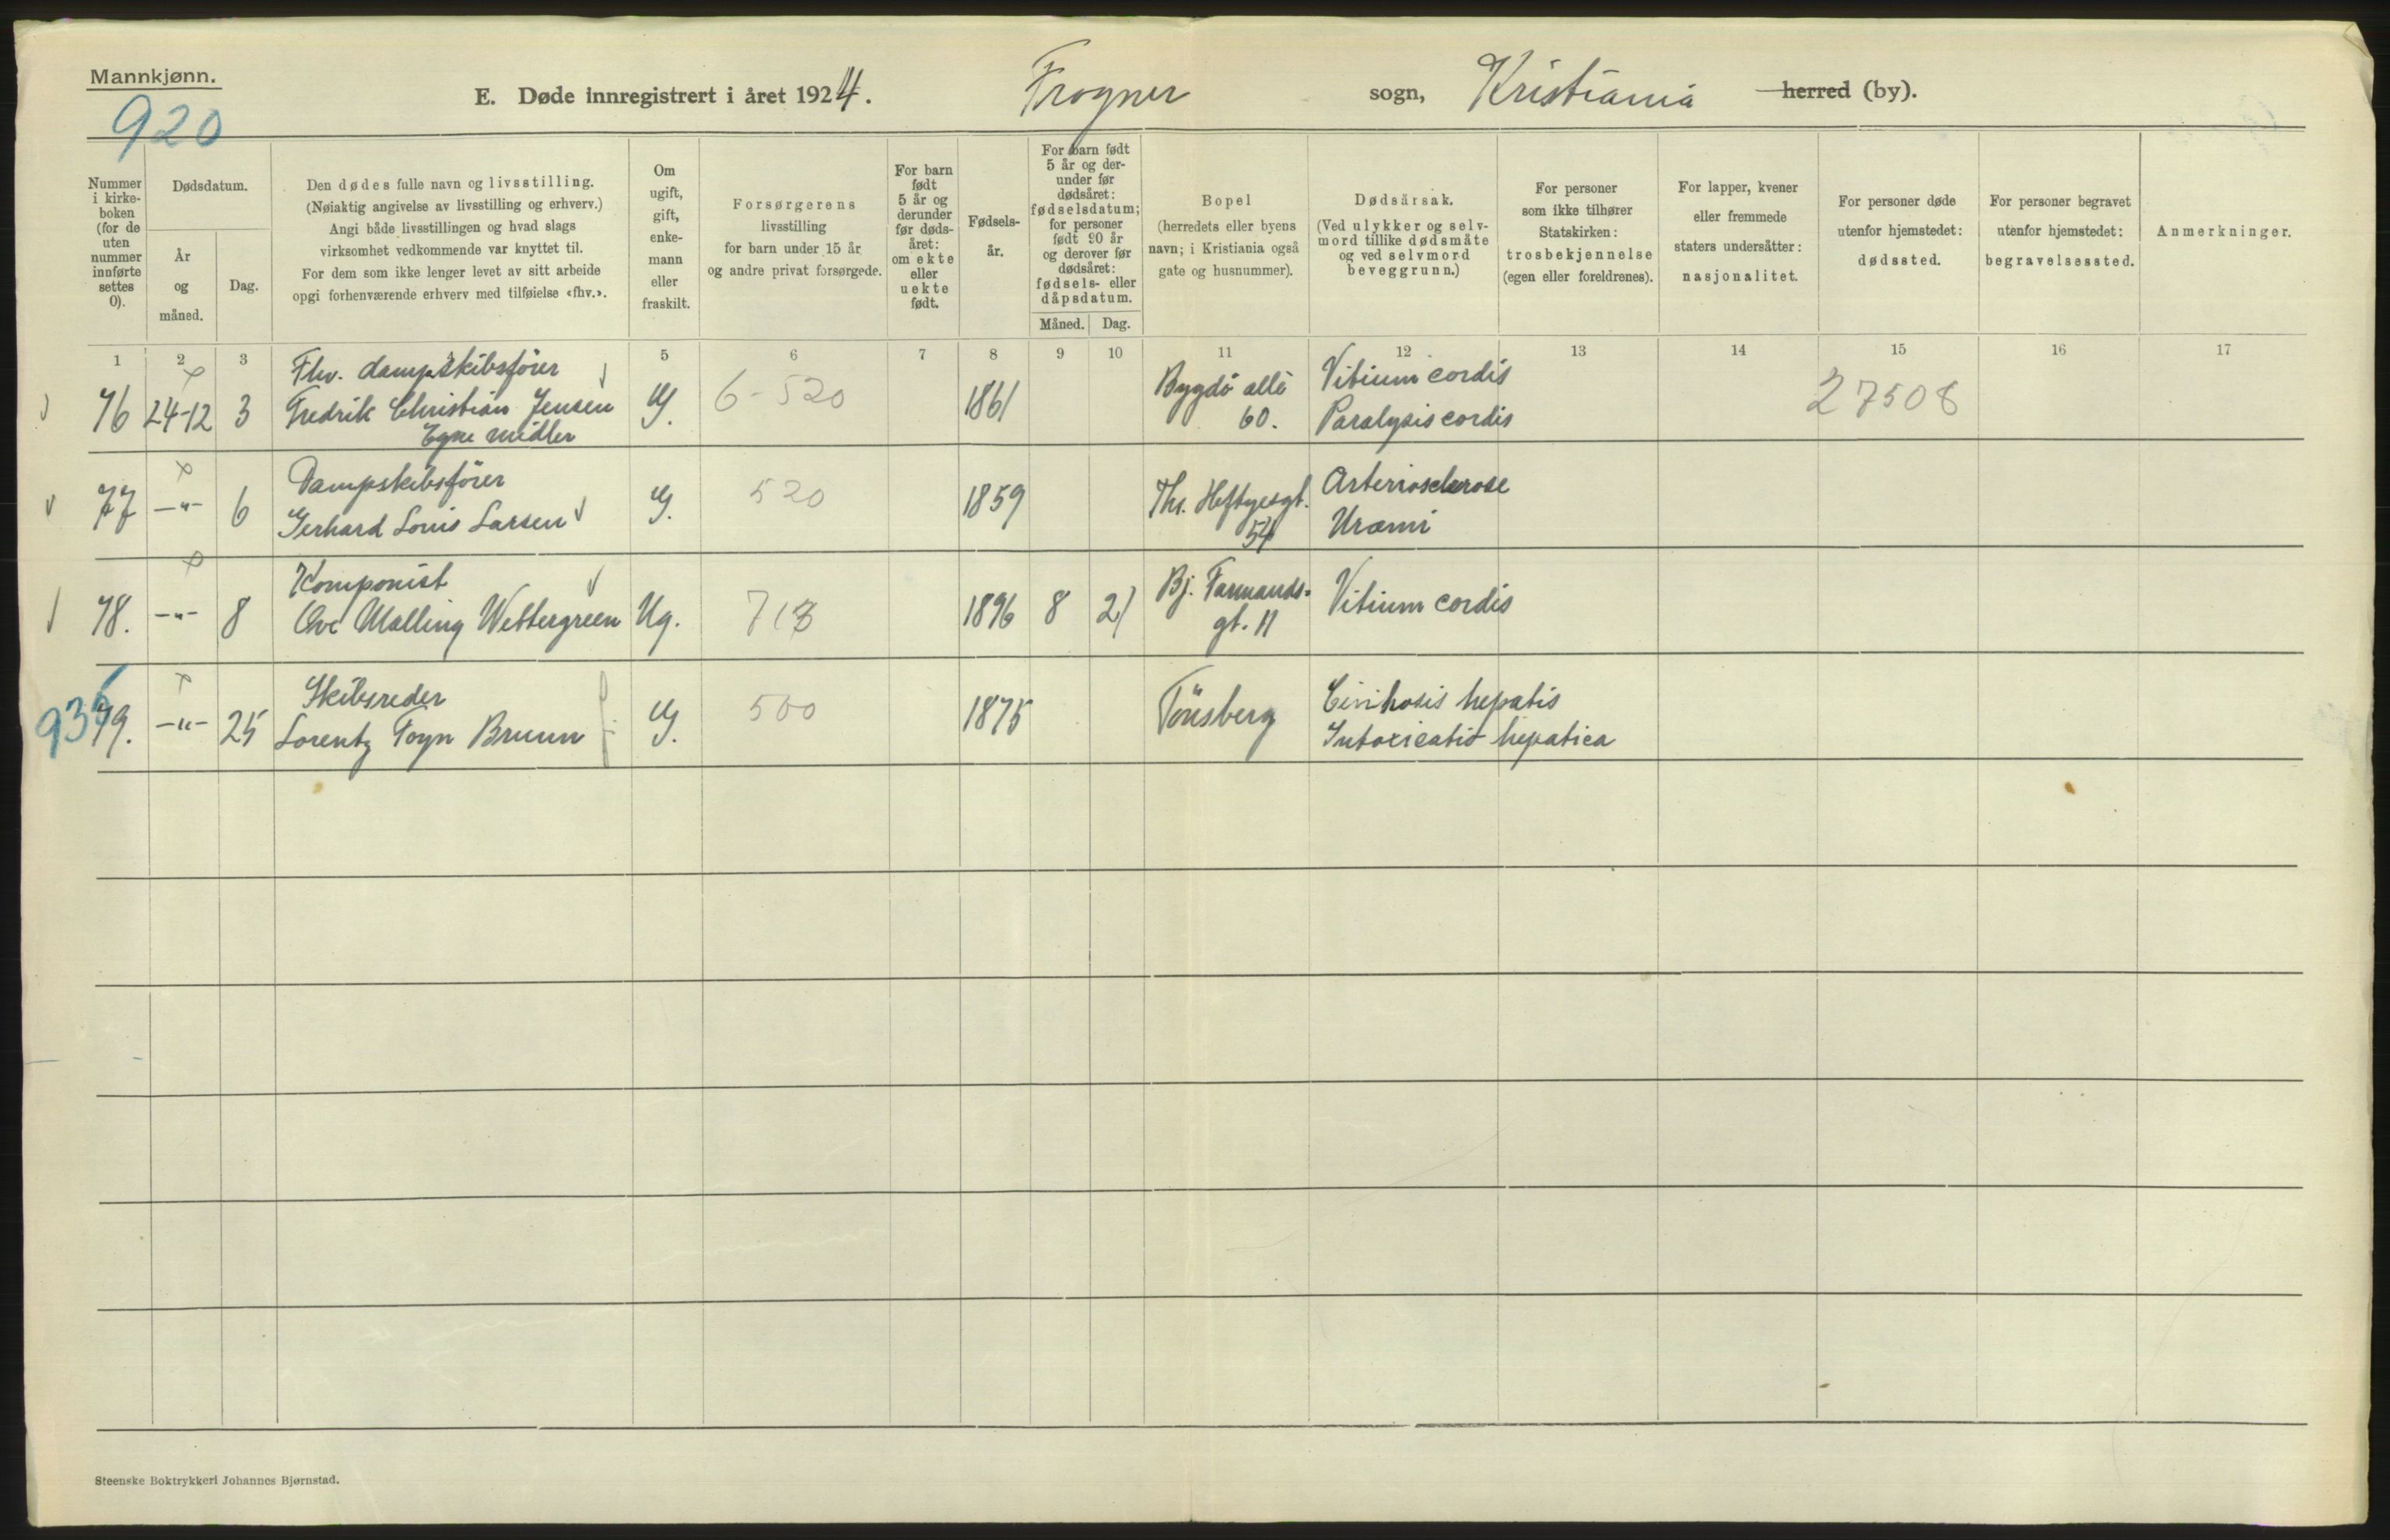 Mannkjønn.
920
E. Døde innregistrert i året 1924. Frogner sogn, Kristiania herred (by).
Nummer i kirke-boken (for de uten nummer innførte settes 0).
Dødsdatum.
År og måned.
Dag.
Den dødes fulle navn og livsstilling.
(Nøiaktig angivelse av livsstilling og erhverv.)
Angi både livsstillingen og hvad slags
virksomhet vedkommende var knyttet til.
For dem som ikke lenger levet av sitt arbeide
opgi forhenværende erhverv med tilføielse «fhv.».
Om ugift, gift, enke-mann eller fraskilt.
Forsørgerens
livsstilling
for barn under 15 år
og andre privat forsørgede.
For barn født 5 år og derunder før døds-året: om ekte eller uekte født.
Fødsels-år.
For barn født 5 år og der-under før dødsåret: fødselsdatum; for personer født 90 år og derover før dødsåret: fødsels- eller dåpsdatum.
Måned. Dag.
Bopel
(herredets eller byens
navn; i Kristiania også
gate og husnummer).
Dødsårsak.
(Ved ulykker og selv-
mord tillike dødsmåte
og ved selvmord
beveggrunn.)
For personer
som ikke tilhører
Statskirken:
trosbekjennelse
(egen eller foreldrenes).
For lapper, kvener
eller fremmede
staters undersåtter:
nasjonalitet.
For personer døde
utenfor hjemstedet:
dødssted.
For personer begravet
utenfor hjemstedet:
begravelsessted.
Anmerkninger.
1 2 3 5 6 7 8 9 10 11 12 13 14 15 16 17
Fhv. dampskibsfører
76 24-12 3 Fredrik Christian Jensen G. 6-520 1861 Bygdö allé 60. Vitium cordis
Egne midler Paralysis cordis 27508
Dampskibsfører
77 -"- 6 Gerhard Louis Larsen G. 520 1859 Th. Heftyesgt. 54 Arteriosclerose
Uræmi
Komponist
78. -"- 8 Ove Malling Wettergreen Ug. 713 1896 8 21 Bj. Farmands-
gt. 11 Vitium cordis
Skibsreder
935 79. -"- 25 Lorentz Foyn Bruun G. 500 1875 Tönsberg Cirrhosis hepatis
Intoxicatio hepatica
Steenske Boktrykkeri Johannes Bjørnstad.